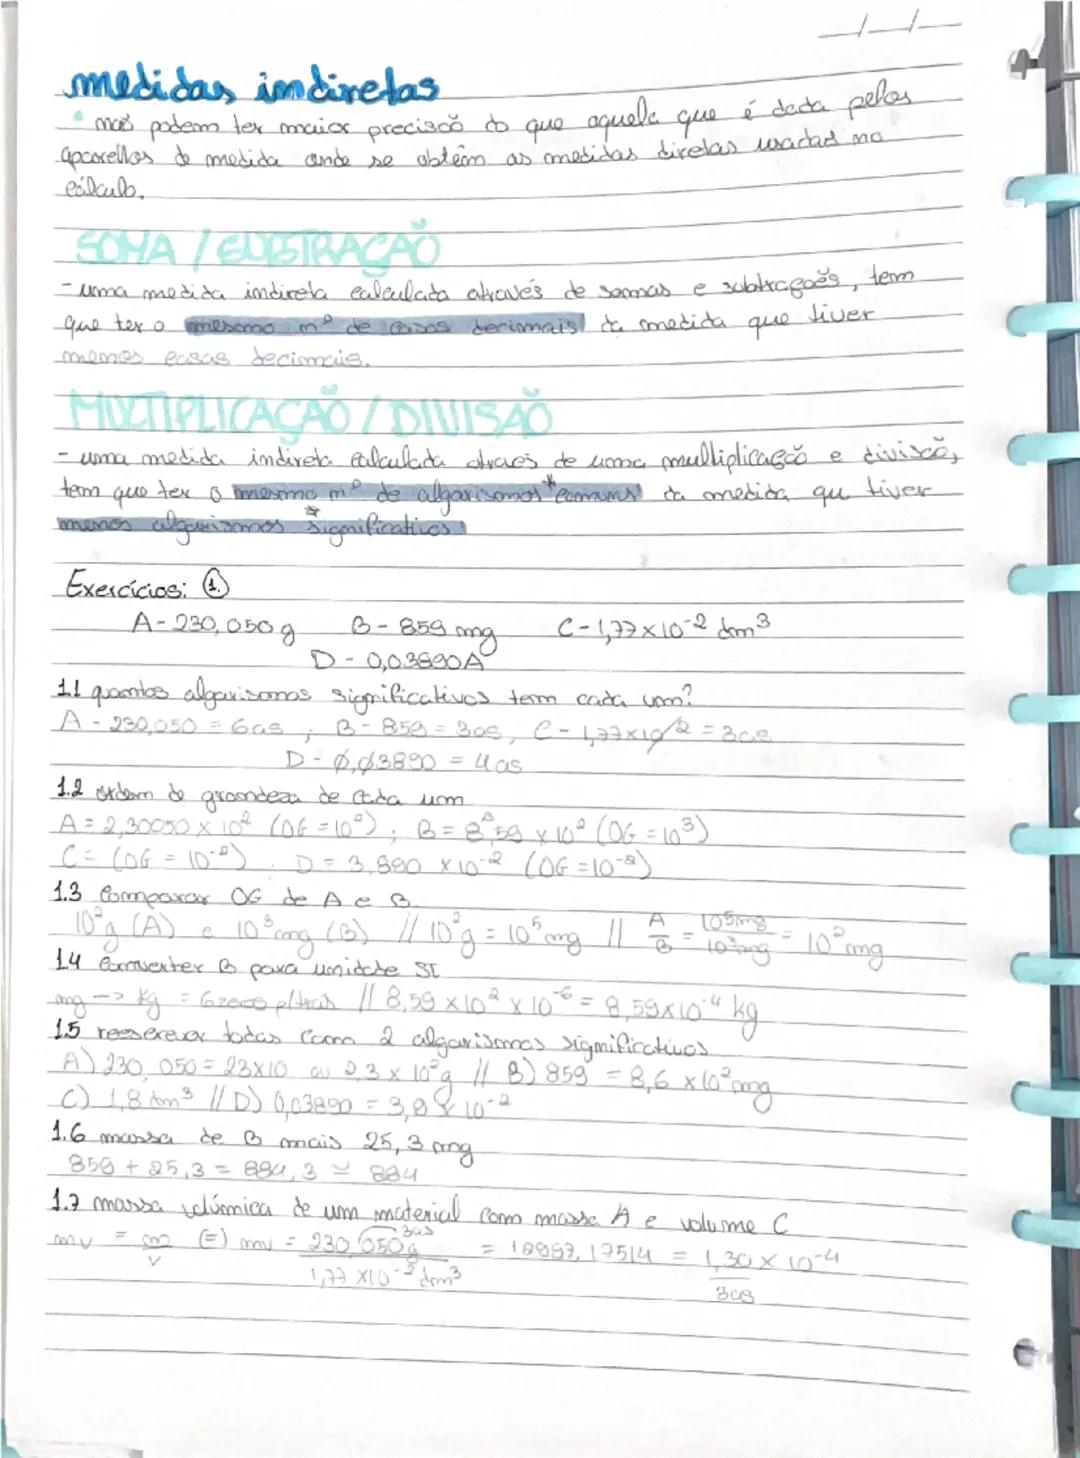 medidas indiretas
• não podem ter maior precisão do que aquela que é dada pelos
aparelhos de medida onde se obtêm as medidas diretas usadas no
cálculo.
SOMA / SUBSTRAÇÃO
- uma medida indireta calculada através de somas e subtrações, tem
que ter o mesmo nº de casas decimais da medida que tiver
menos casas decimais.
MULTIPLICAÇÃO / DIVISÃO
- uma medida indireta calculada através de uma multiplicação e divisão,
tem que ter o mesmo nº de algarismos *comuns da medida que tiver
menos algarismos *significativos
Exercícios: 1.
A - 230,050 g B - 859 mg C - 1,77 x 10⁻² dm³
D - 0,03890 A
1.1 quantos algarismos significativos tem cada um?
A - 230,050 = 6 as ; B - 859 = 3 as, C - 1,77 x 10⁻² = 3 as
D - 0,03890 = 4 as
1.2 ordem de grandeza de cada um
A = 2,30050 x 10² (OG = 10²) ; B = 8,59 x 10² (OG = 10³)
C = (OG = 10⁻²) . D = 3,890 x 10⁻² (OG = 10⁻²)
1.3 Comparar OG de A e B.
10² g (A) e 10³ mg (B) // 10² g = 10⁵ mg // A/B = 10⁵ mg / 10³ mg = 10² mg
1.4 Converter B para unidade SI
mg -> kg = 6 casas p/ trás // 8,59 x 10² x 10⁻⁶ = 8,59 x 10⁻⁴ kg
1.5 reescrever todas com 2 algarismos significativos
A) 230,050 = 23 x 10 ou 2,3 x 10² g // B) 859 = 8,6 x 10² mg
C) 1,8 dm³ // D) 0,03890 = 3,9 x 10⁻²
1.6 massa de B mais 25,3 mg
859 + 25,3 = 884,3 ≃ 884
1.7 massa volúmica de um material com massa A e volume C
3 as
mv = m/v (=) mv = 230,050 g / 1,77 x 10⁻² dm³ = 12997,17514 = 1,30 x 10⁻⁴
3 as